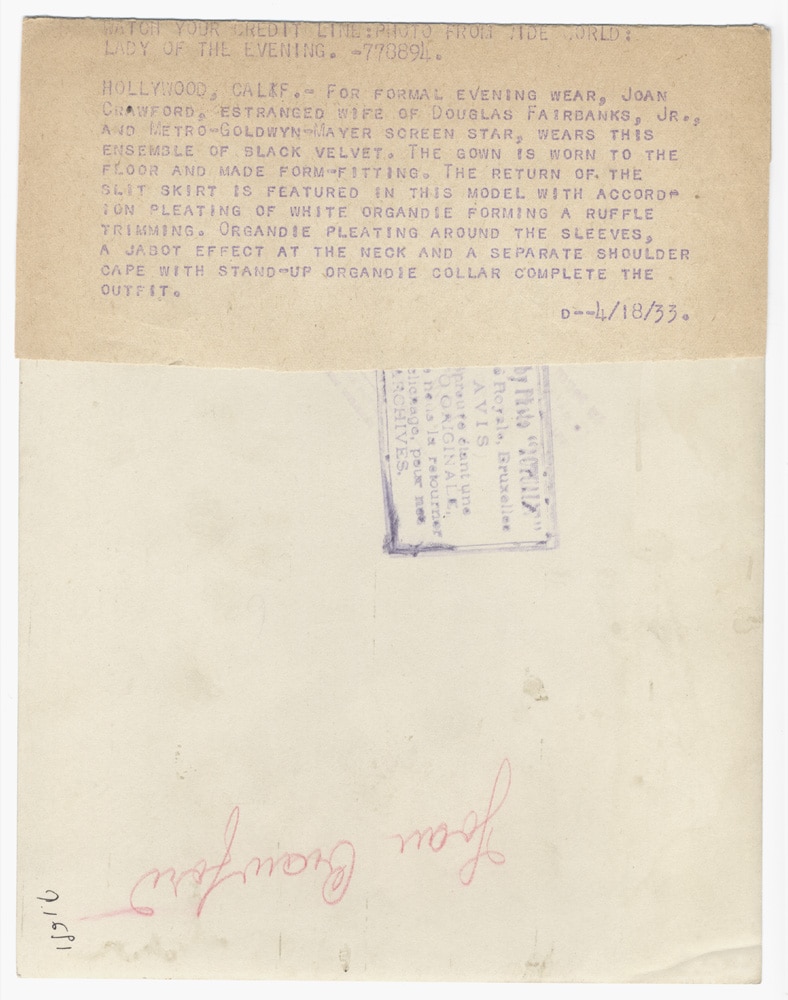 WATCH YOUR CREDIT LINE: PHOTO FROM WIDE WORLD:
LADY OF THE EVENING. -778894.
HOLLYWOOD, CALIF.- FOR FORMAL EVENING WEAR, JOAN
CRAWFORD, ESTRANGED WIFE OF DOUGLAS FAIRBANKS, JR.,
AND METRO-GOLDWYN-MAYER SCREEN STAR, WEARS THIS
ENSEMBLE OF BLACK VELVET. THE GOWN IS WORN TO THE
FLOOR AND MADE FORM-FITTING. THE RETURN OF THE
SLIT SKIRT IS FEATURED IN THIS MODEL WITH ACCORD-
ION PLEATING OF WHITE ORGANDIE FORMING A RUFFLE
TRIMMING. ORGANDIE PLEATING AROUND THE SLEEVES,
A JABOT EFFECT AT THE NECK AND A SEPARATE SHOULDER
CAPE WITH STAND-UP ORGANDIE COLLAR COMPLETE THE
OUTFIT.
D--4/18/33.
Royale, Bruxelles
AVIS
étant une
ORIGINALE,
nous la retourner
clichage, pour nos
ARCHIVES.
Joan Crawford